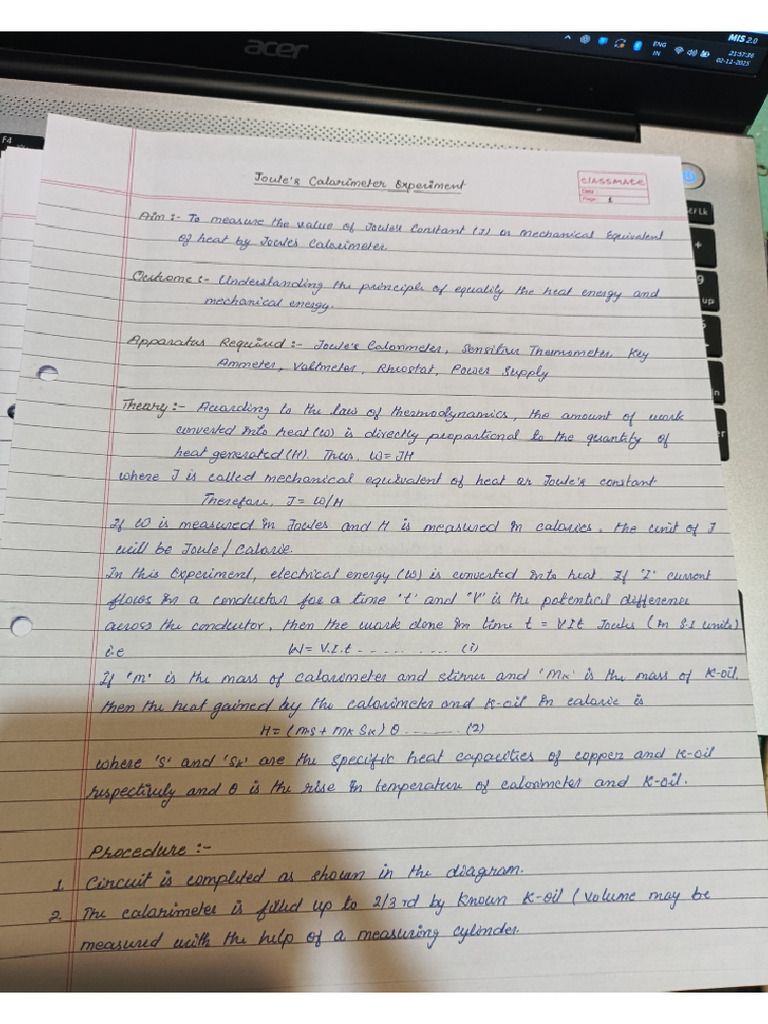 acer
MIS 2.0
ENG
IN
21:57:36
02-11-2025
F4
Joule's Calorimeter Experiment
classmate
Date
Page 1
Aim :- To measure the value of Joule's Constant (J) or Mechanical Equivalent
of heat by Joule's Calorimeter.
Outcome :- Understanding the principle of equality the heat energy and
mechanical energy.
Apparatus Required :- Joule's Calorimeter, Sensitive Thermometer, Key
Ammeter, Voltmeter, Rheostat, Power Supply
Theory :- According to the law of thermodynamics, the amount of work
converted into heat (W) is directly proportional to the quantity of
heat generated (H). Thus, W = JH
where J is called mechanical equivalent of heat or Joule's constant
Therefore, J = W/H
If W is measured in Joules and H is measured in calories, the unit of J
will be Joule/Calorie.
In this Experiment, electrical energy (W) is converted into heat. If 'I' current
flows in a conductor for a time 't' and "V' is the potential difference
across the conductor, then the work done in time t = V.I.t Joules (in S.I units)
i.e W = V.I.t .... ..... ... (i)
If 'm' is the mass of calorimeter and stirrer and 'Mk' is the mass of K-oil,
then the heat gained by the calorimeter and K-oil in calorie is
H = (ms + mk Sk) θ ......... (2)
where 's' and 'Sk' are the specific heat capacities of copper and K-oil
respectively and θ is the rise in temperature of calorimeter and K-oil.
Procedure :-
1. Circuit is completed as shown in the diagram.
2. The calorimeter is filled up to 2/3 rd by known K-oil (volume may be
measured with the help of a measuring cylinder.